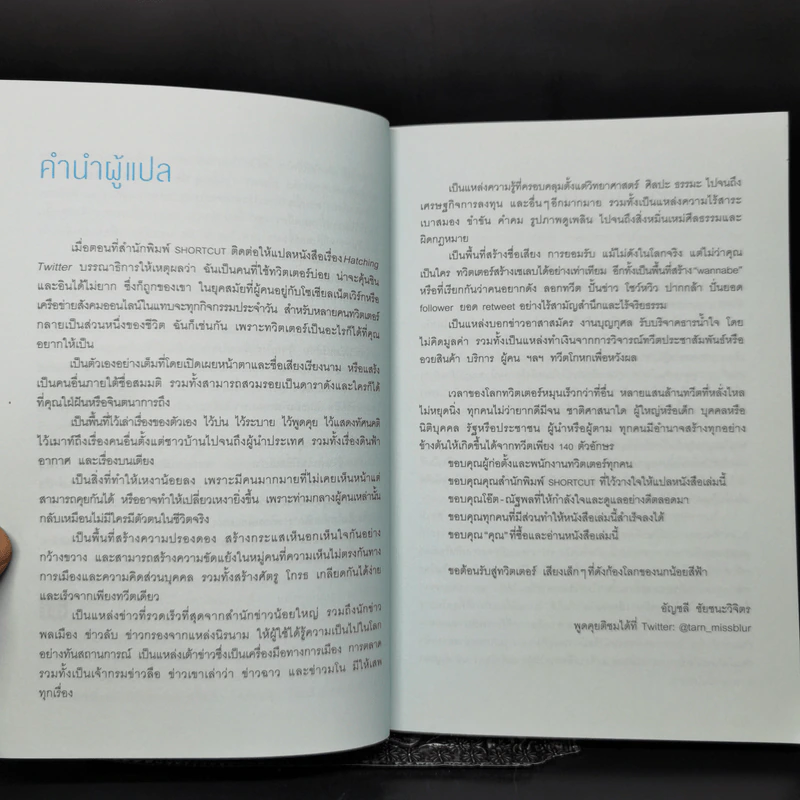 คำนำผู้แปล
เมื่อตอนที่สำนักพิมพ์ SHORTCUT ติดต่อให้แปลหนังสือเรื่อง Hatching
Twitter บรรณาธิการให้เหตุผลว่า ฉันเป็นคนที่ใช้ทวิตเตอร์บ่อย น่าจะคุ้นชิน
และอินได้ไม่ยาก ซึ่งก็ถูกของเขา ในยุคสมัยที่ผู้คนอยู่กับโซเชียลเน็ตเวิร์กหรือ
เครือข่ายสังคมออนไลน์ในแทบจะทุกกิจกรรมประจำวัน สำหรับหลายคนทวิตเตอร์
กลายเป็นส่วนหนึ่งของชีวิต ฉันก็เช่นกัน เพราะทวิตเตอร์เป็นอะไรก็ได้ที่คุณ
อยากให้เป็น
เป็นตัวเองอย่างเต็มที่โดยเปิดเผยหน้าตาและชื่อเสียงเรียงนาม หรือแสร้ง
เป็นคนอื่นภายใต้ชื่อสมมติ รวมทั้งสามารถสวมรอยเป็นดาราดังและใครก็ได้
ที่คุณใฝ่ฝันหรือจินตนาการถึง
เป็นพื้นที่ไว้เล่าเรื่องของตัวเอง ไว้บ่น ไว้ระบาย ไว้พูดคุย ไว้แสดงทัศนคติ
ไว้เมาท์ถึงเรื่องคนอื่นตั้งแต่ชาวบ้านไปจนถึงผู้นำประเทศ รวมทั้งเรื่องดินฟ้า
อากาศ และเรื่องบนเตียง
เป็นสิ่งที่ทำให้เหงาน้อยลง เพราะมีคนมากมายที่ไม่เคยเห็นหน้าแต่
สามารถคุยกันได้ หรืออาจทำให้เปลี่ยวเหงายิ่งขึ้น เพราะท่ามกลางผู้คนเหล่านั้น
กลับเหมือนไม่มีใครมีตัวตนในชีวิตจริง
เป็นพื้นที่สร้างความปรองดอง สร้างกระแสเห็นอกเห็นใจกันอย่าง
กว้างขวาง และสามารถสร้างความขัดแย้งในหมู่คนที่ความเห็นไม่ตรงกันทาง
การเมืองและความคิดส่วนบุคคล รวมทั้งสร้างศัตรู โกรธ เกลียดกันได้ง่าย
และเร็วจากเพียงทวีตเดียว
เป็นแหล่งข่าวที่รวดเร็วที่สุดจากสำนักข่าวน้อยใหญ่ รวมถึงนักข่าว
พลเมือง ข่าวลับ ข่าวกรองจากแหล่งนิรนาม ให้ผู้ใช้ได้รู้ความเป็นไปในโลก
อย่างทันสถานการณ์ เป็นแหล่งเต้าข่าวซึ่งเป็นเครื่องมือทางการเมือง การตลาด
รวมทั้งเป็นเจ้ากรมข่าวลือ ข่าวเขาเล่าว่า ข่าวฉาว และข่าวมโน มีให้เสพ
ทุกเรื่อง
เป็นแหล่งความรู้ที่ครอบคลุมตั้งแต่วิทยาศาสตร์ ศิลปะ ธรรมะ ไปจนถึง
เศรษฐกิจการลงทุน และอื่นๆ อีกมากมาย รวมทั้งเป็นแหล่งความไร้สาระ
เบาสมอง ขำขัน คำคม รูปภาพดูเพลิน ไปจนถึงสิ่งหมิ่นเหม่ศีลธรรมและ
ผิดกฎหมาย
เป็นพื้นที่สร้างชื่อเสียง การยอมรับ แม้ไม่ดังในโลกจริง แต่ไม่ว่าคุณ
เป็นใคร ทวิตเตอร์สร้างเซเลบได้อย่างเท่าเทียม อีกทั้งเป็นพื้นที่สร้าง “wannabe”
หรือที่เรียกกันว่าคนอยากดัง ลอกทวีต ปั้นข่าว โชว์หวิว ปากกล้า ปั่นยอด
follower ยอด retweet อย่างไร้สามัญสำนึกและไร้จริยธรรม
เป็นแหล่งบอกข่าวอาสาสมัคร งานบุญกุศล รับบริจาคธารน้ำใจ โดย
ไม่คิดมูลค่า รวมทั้งเป็นแหล่งทำเงินจากการวิจารณ์ทวีตประชาสัมพันธ์หรือ
อวยสินค้า บริการ ผู้คน ฯลฯ ทวีตโกหกเพื่อหวังผล
เวลาของโลกทวิตเตอร์หมุนเร็วกว่าที่อื่น หลายแสนล้านทวีตที่หลั่งไหล
ไม่หยุดนิ่ง ทุกคนไม่ว่ายากดีมีจน ชาติศาสนาใด ผู้ใหญ่หรือเด็ก บุคคลหรือ
นิติบุคคล รัฐหรือประชาชน ผู้นำหรือผู้ตาม ทุกคนมีอำนาจสร้างทุกอย่าง
ข้างต้นให้เกิดขึ้นได้จากทวีตเพียง 140 ตัวอักษร
ขอบคุณผู้ก่อตั้งและพนักงานทวิตเตอร์ทุกคน
ขอบคุณคุณสำนักพิมพ์ SHORTCUT ที่ไว้วางใจให้แปลหนังสือเล่มนี้
ขอบคุณคุณโอ๊ต - ณัฐพลที่ให้กำลังใจและดูแลอย่างดีตลอดมา
ขอบคุณทุกคนที่มีส่วนทำให้หนังสือเล่มนี้สำเร็จลงได้
ขอบคุณ “คุณ” ที่ซื้อและอ่านหนังสือเล่มนี้
ขอต้อนรับสู่ทวิตเตอร์ เสียงเล็กๆ ที่ดังก้องโลกของนกน้อยสีฟ้า
อัญชลี ชัยชนะวิจิตร
พูดคุยติชมได้ที่ Twitter: @tam_missblur